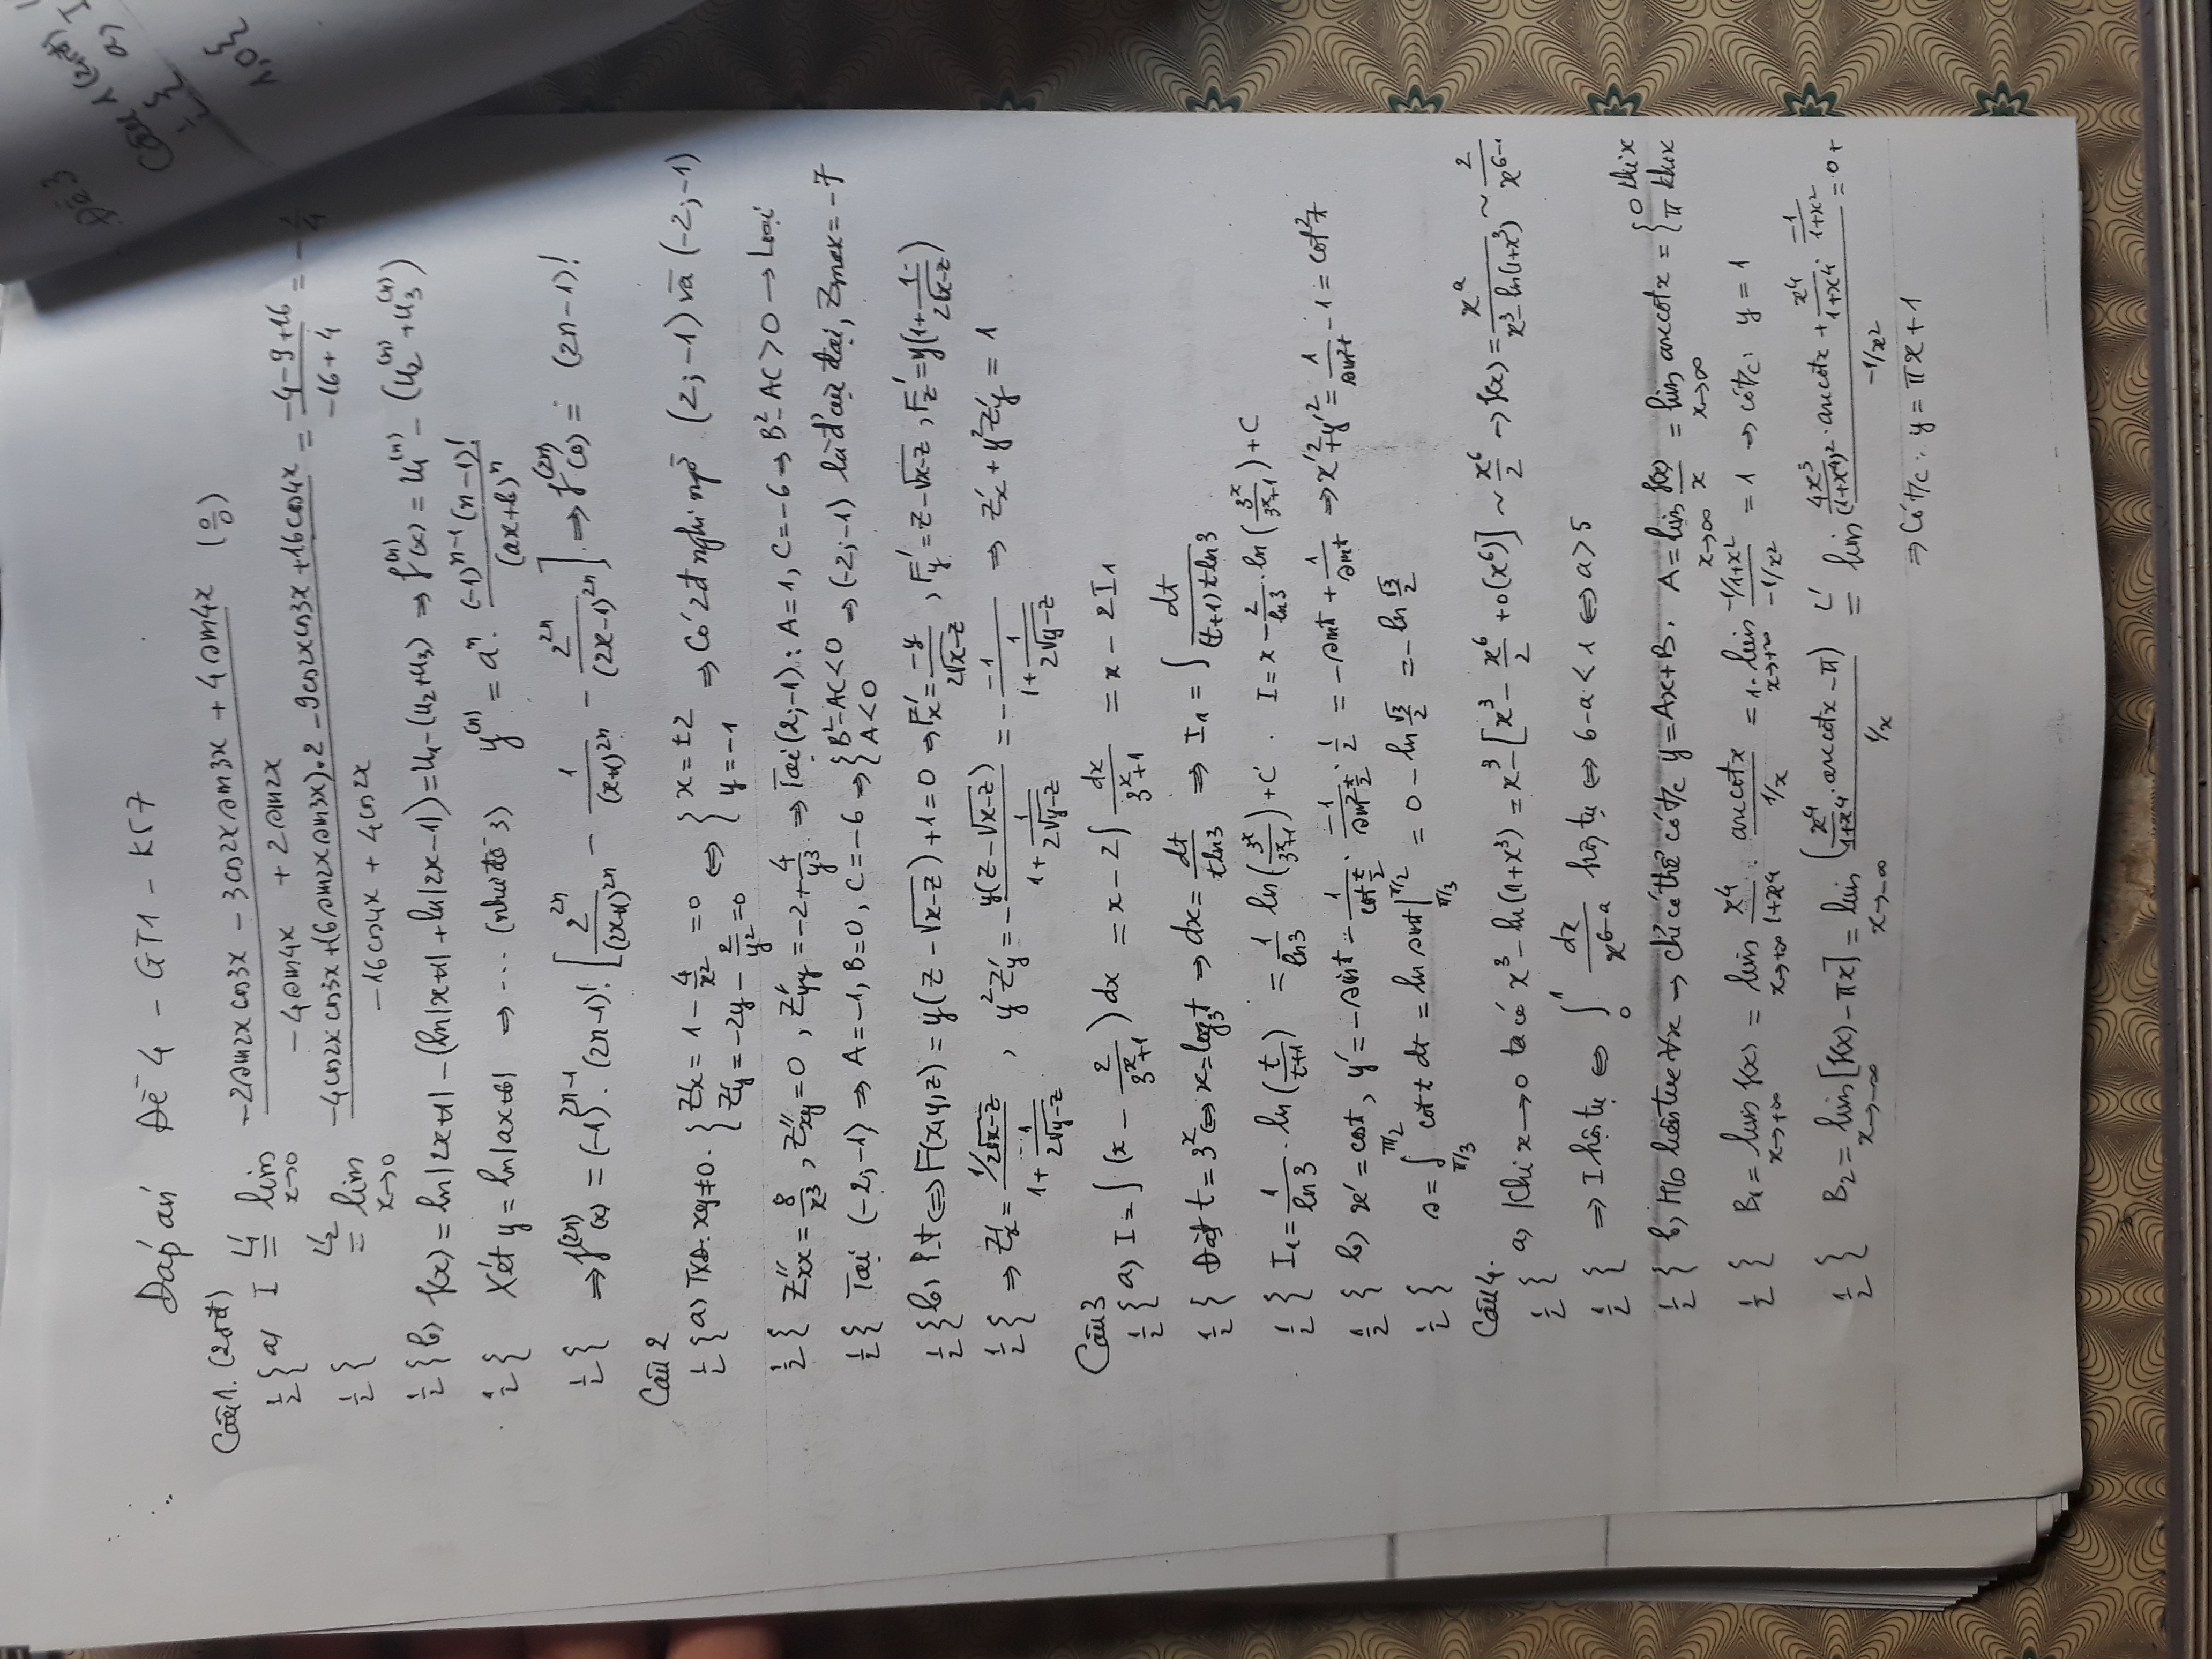 Đáp án Đề 4 - GT1 - K57
Câu 1. (2,5đ)
½ { a, I L1' = lim x→0 (-2sin2x cos3x - 3cos2x sin3x + 4sin4x) / (-4sin4x + 2sin2x) (0/0)
½ { L2' = lim x→0 (-4cos2x cos3x + (6sin2x sin3x).2 - 9cos2x cos3x + 16cos4x) / (-16cos4x + 4cos2x) = (-4-9+16) / (-16+4) = -1/4
½ { b) f(x) = ln|2x+1| - (ln|x+1| + ln|2x-1|) = u₁ - (u₂+u₃) ⇒ f⁽ⁿ⁾(x) = u₁⁽ⁿ⁾ - (u₂⁽ⁿ⁾ + u₃⁽ⁿ⁾)
½ { Xét y = ln|ax+b| ⇒ ... (như đề 3) y⁽ⁿ⁾ = aⁿ. (-1)ⁿ⁻¹(n-1)! / (ax+b)ⁿ
½ { ⇒ f⁽²ⁿ⁾(x) = (-1)²ⁿ⁻¹. (2n-1)! [2²ⁿ/(2x+1)²ⁿ - 1/(x+1)²ⁿ - 2²ⁿ/(2x-1)²ⁿ] ⇒ f⁽²ⁿ⁾(0) = (2n-1)!
Câu 2
½ { a) TXĐ: xy≠0. { Z'x = 1 - 4/x² = 0 Z'y = -2y - 2/y² = 0 ⇔ { x = ±2 y = -1 ⇒ Có 2 đ nghi ngờ (2;-1) và (-2;-1)
½ { Z''xx = 8/x³, Z''xy = 0, Z''yy = -2 + 4/y³ ⇒ Tại (2;-1): A=1, C=-6 ⇒ B²-AC>0 → Loại
½ { Tại (-2;-1) ⇒ A=-1, B=0, C=-6 ⇒ { B²-AC<0 A<0 ⇒ (-2;-1) là đ cực đại, Zmax = -7
½ { b, P.t ⇔ F(x,y,z) = y(z - √(x-z)) + 1 = 0 ⇒ F'x = -y/(2√(x-z)), F'y = z - √(x-z), F'z = y(1 + 1/(2√(x-z)))
½ { ⇒ Z'x = (1/2√(x-z)) / (1 + 1/(2√(y-z))), y²Z'y = - y(z-√(x-z)) / (1 + 1/(2√(y-z))) = - -1 / (1 + 1/(2√(y-z))) ⇒ Z'x + y²Z'y = 1
Câu 3
½ { a, I = ∫(x - 2/(3ˣ+1))dx = x - 2∫ dx/(3ˣ+1) = x - 2I₁
½ { Đặt t = 3ˣ ⇔ x = log₃t ⇒ dx = dt/(t ln3) ⇒ I₁ = ∫ dt/((t+1)t ln3)
½ { I₁ = 1/ln3 . ln(t/(t+1)) = 1/ln3 ln(3ˣ/(3ˣ+1)) + C. I = x - 2/ln3 . ln(3ˣ/(3ˣ+1)) + C
½ { b) x' = cost, y' = -sint - 1/cot(t/2) . -1/sin²(t/2) . 1/2 = -sint + 1/sint ⇒ x'² + y'² = 1/sin²t - 1 = cot²t
½ { s = ∫ π/3 π/2 cot t dt = ln sint | π/3 π/2 = 0 - ln √3/2 = -ln √3/2
Câu 4.
½ { a, Khi x→0 ta có x³ - ln(1+x³) = x³ - [x³ - x⁶/2 + o(x⁶)] ~ x⁶/2 → f(x) = xᵃ/(x³-ln(1+x³)) ~ 2/x⁶⁻
½ { ⇒ I hội tụ ⇔ ∫₀¹ dx/x⁶⁻ᵃ hội tụ ⇔ 6-a < 1 ⇔ a > 5
½ { b, H/s liên tục ∀x → chỉ có thể có t/c y = Ax+B. A = lim x→∞ f(x)/x = lim x→∞ arccotx = { 0 khi x π khi x
½ { B₁ = lim x→+∞ f(x) = lim x→+∞ x⁴/(1+x⁴) . arccotx/(1/x) = 1. lim x→+∞ (-1/1+x²)/(-1/x²) = 1 ⇒ có t/c: y = 1
½ { B₂ = lim x→-∞ [f(x) - πx] = lim x→-∞ (x⁴/(1+x⁴) . arccotx - π) / (1/x) L' = lim (4x³/(1+x⁴)² . arccotx + x⁴/(1+x⁴) . -1/(1+x²)) / (-1/x²) = 0 +
⇒ Có t/c: y = πx + 1
Đề 3
Câu 1 (2,5đ)
½ { a, I
1,0 {